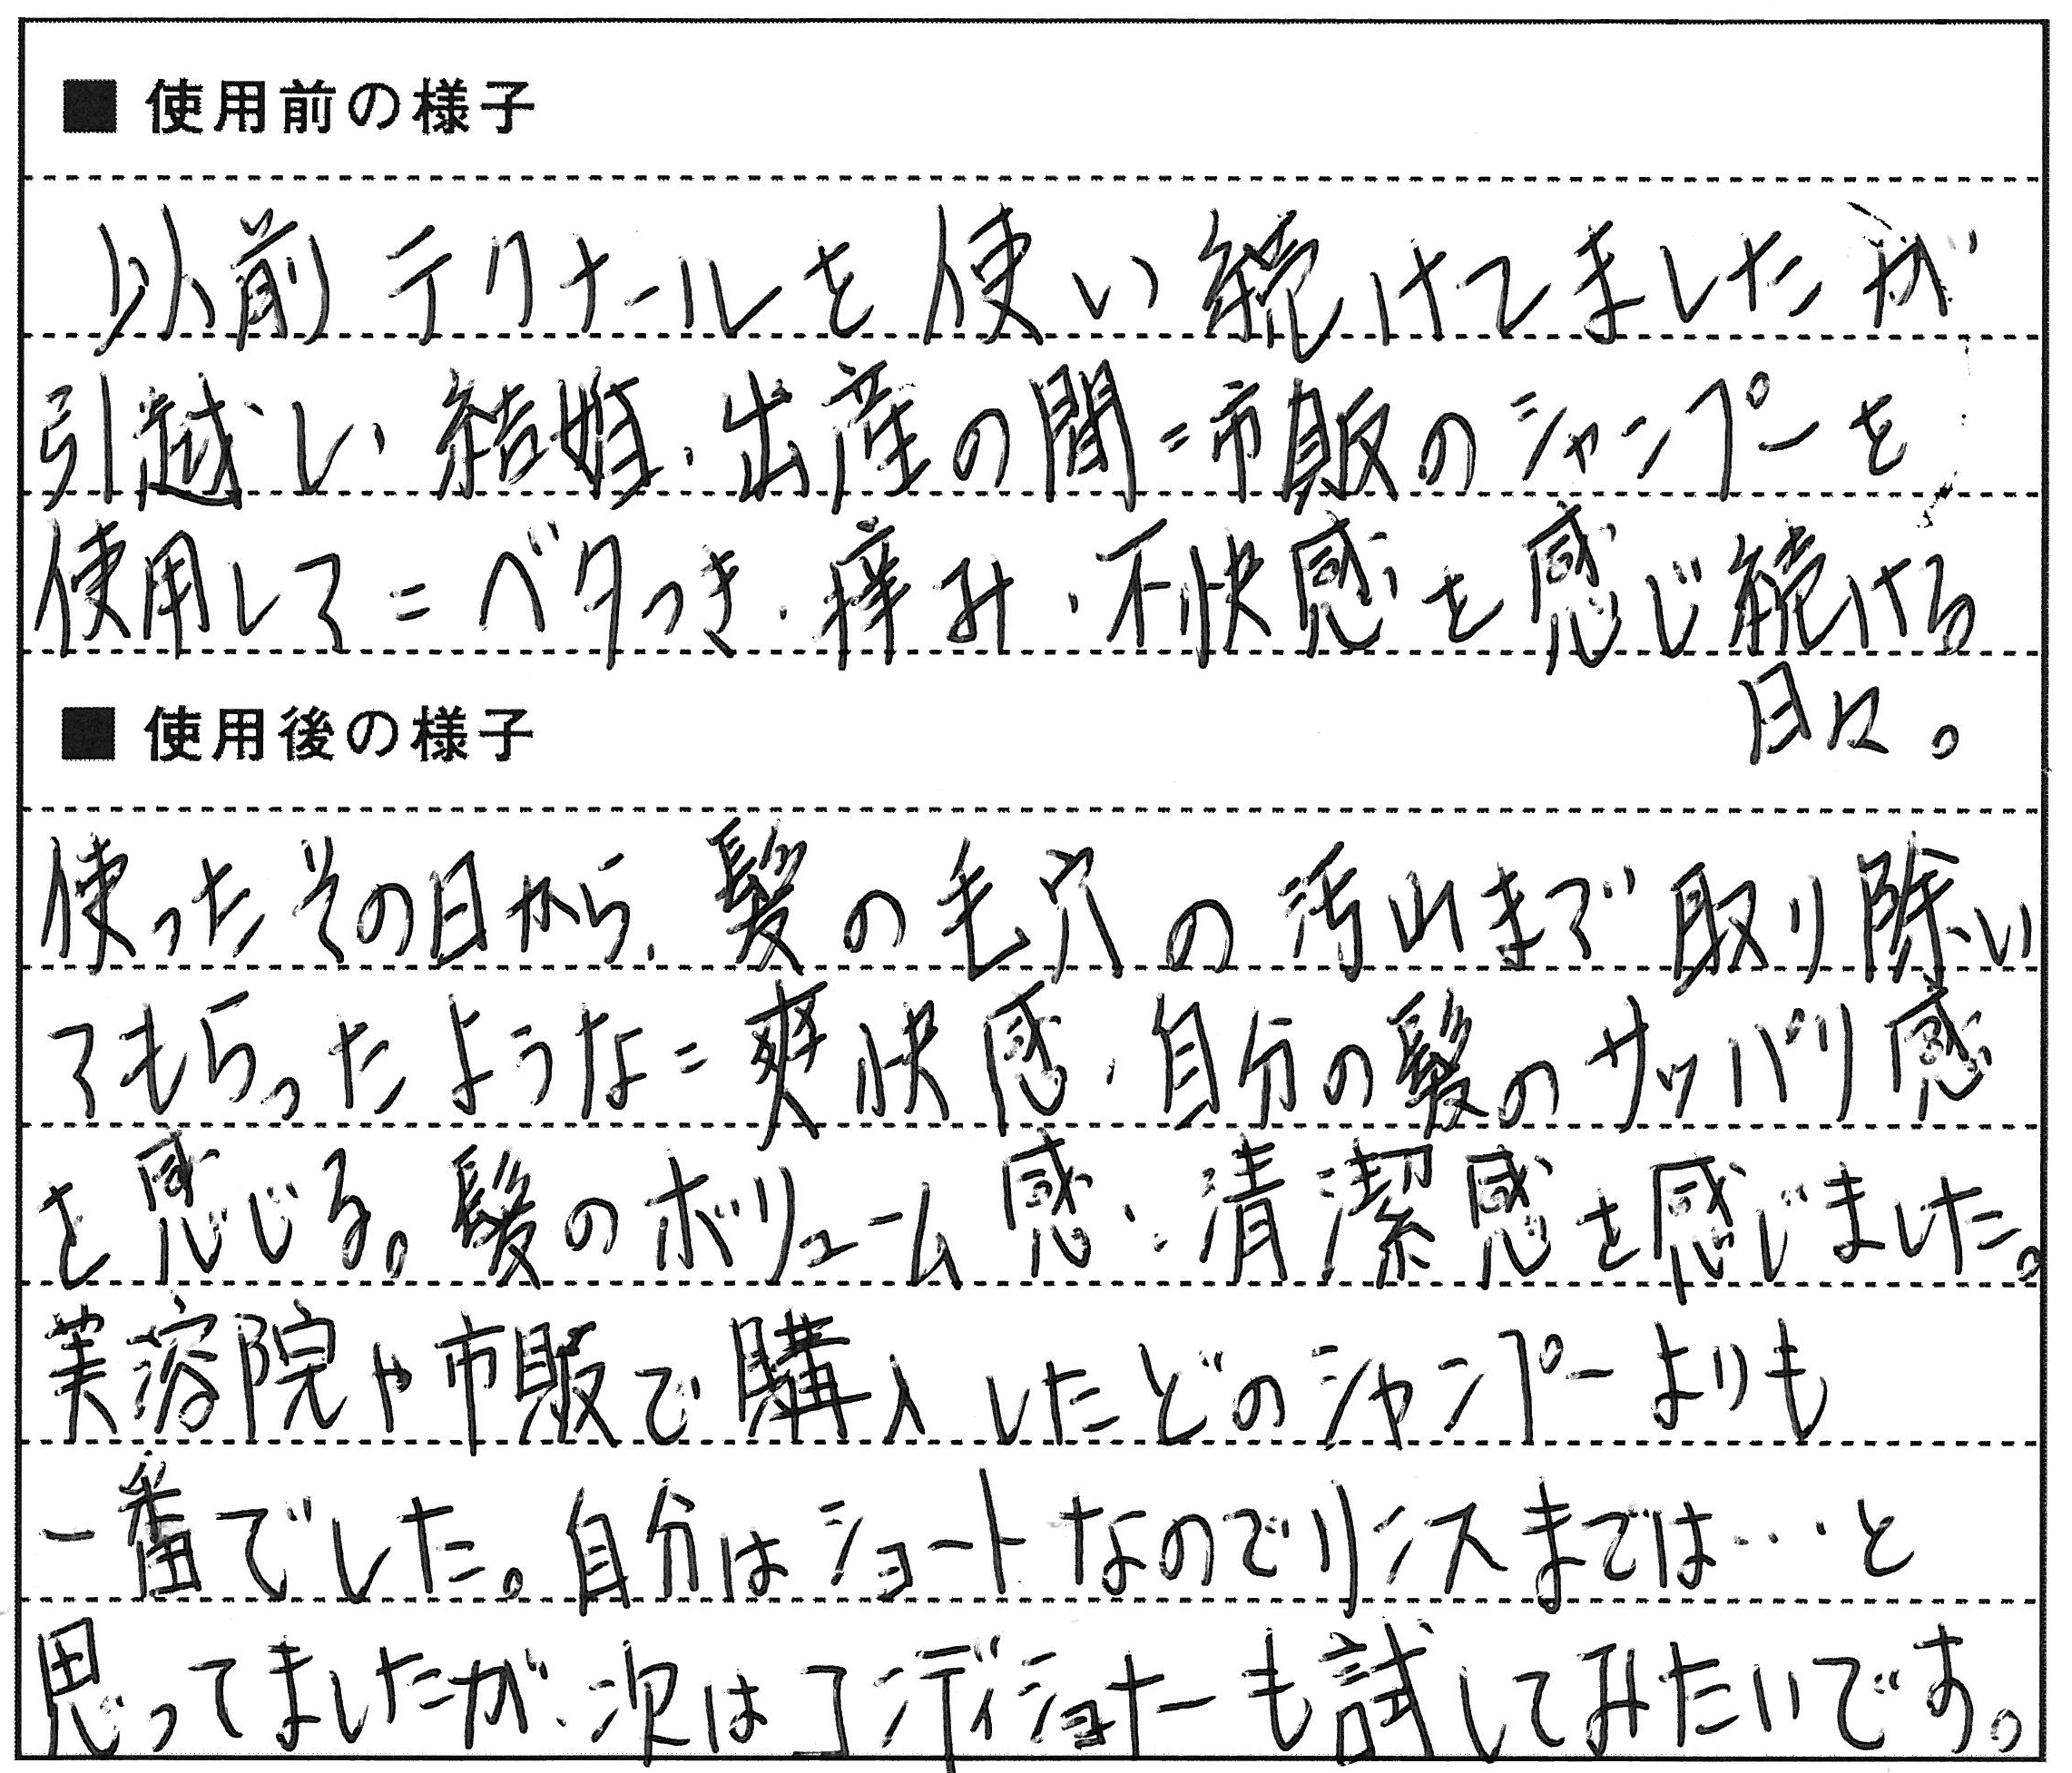 ■ 使用前の様子
以前テクナールを使い続けてましたが
引越し、結婚、出産の間=市販のシャンプーを
使用して=ベタつき、痒み、不快感を感じ続ける
日々。
■ 使用後の様子
使ったその日から、髪の毛穴の汚れまで取り除い
てもらったような=爽快感、自分の髪のサッパリ感
を感じる。髪のボリューム感、清潔感を感じました。
美容院や市販で購入したどのシャンプーよりも
一番でした。自分はショートなのでリンスまでは…と
思ってましたが、次はコンディショナーも試してみたいです。